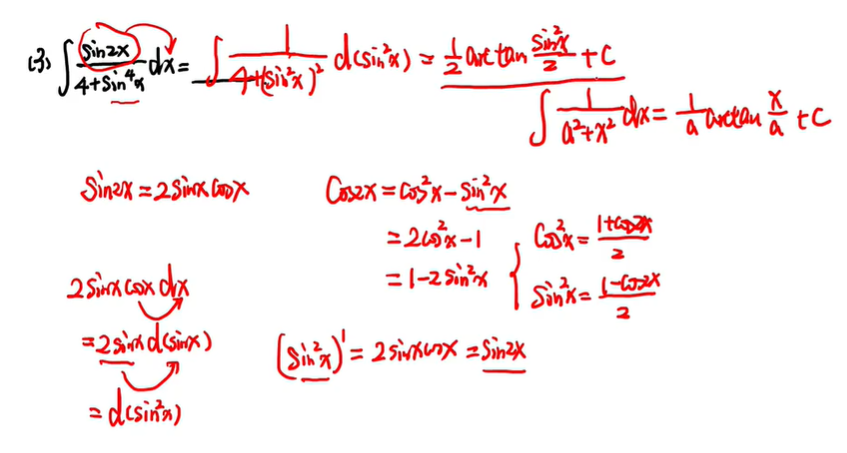 (3) ∫ sin2x/(4+sin⁴x) dx = ∫ 1/(4+(sin²x)²) d(sin²x) = 1/2 arctan sin²x/2 + C
∫ 1/(a²+x²) dx = 1/a arctan x/a + C
sin2x = 2sinxcosx
cos2x = cos²x − sin²x
= 2cos²x − 1
= 1 − 2sin²x
{ cos²x = (1+cos2x)/2
sin²x = (1−cos2x)/2
2sinxcosxdx
= 2sinxd(sinx)
= d(sin²x)
(sin²x)' = 2sinxcosx = sin2x